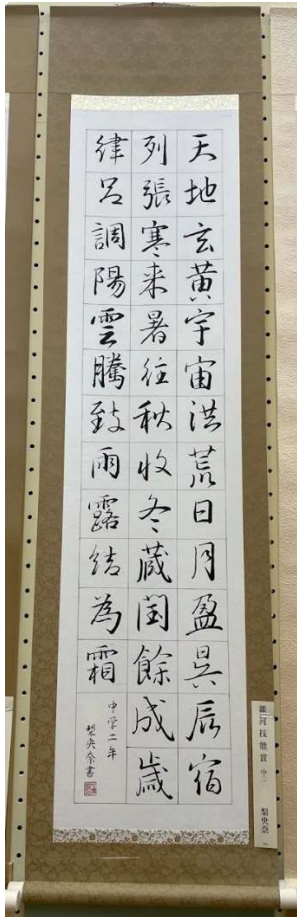 天地玄黄宇宙洪荒日月盈昃辰宿
列張寒来暑往秋收冬蔵閏餘成歳
律呂調陽雲騰致雨露結為霜
中学二年
梨央奈書
銀河技能賞 中二 梨央奈